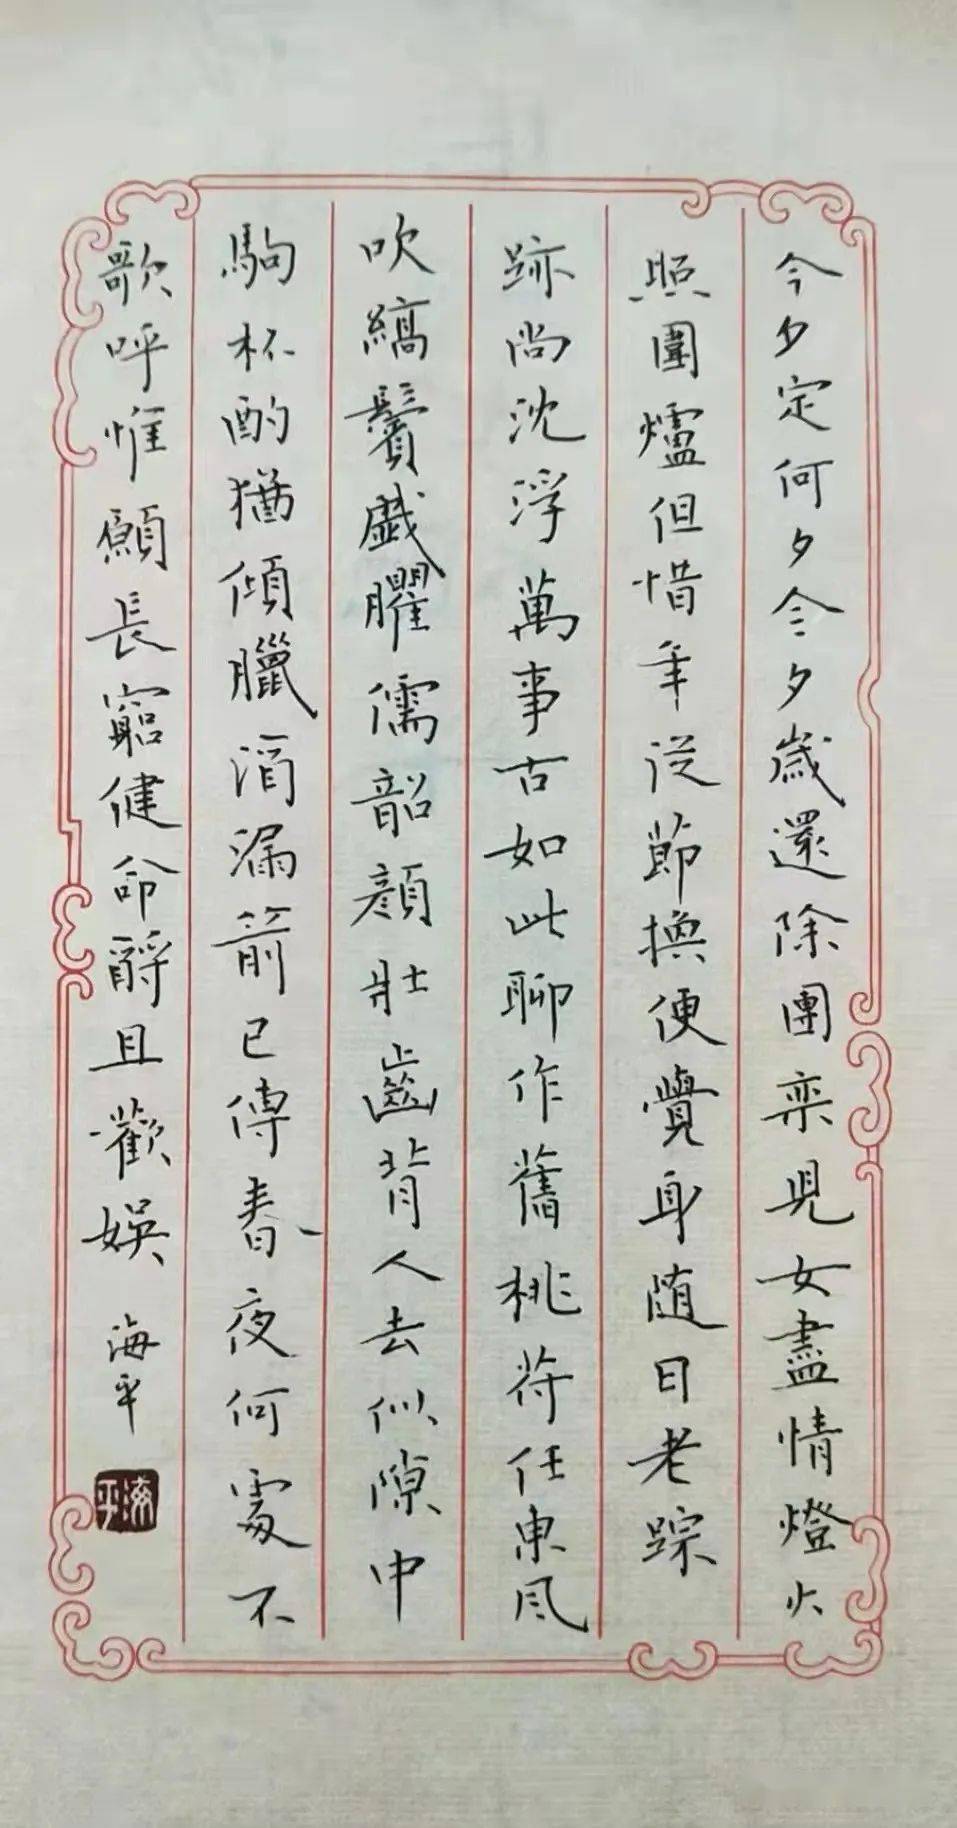 今夕定何夕今夕歲還除團欒兒女盡情燈火
照圍爐但惜年從節換便覺身隨日老踪
跡尚沈浮萬事古如此聊作舊桃符任東風
吹縞鬢戲臞儒韶顏壯齒背人去似隙中
駒杯酌猶傾臘酒漏箭已傳春夜何處不
歌呼惟願長窮健命酹且歡娛
海平
海平